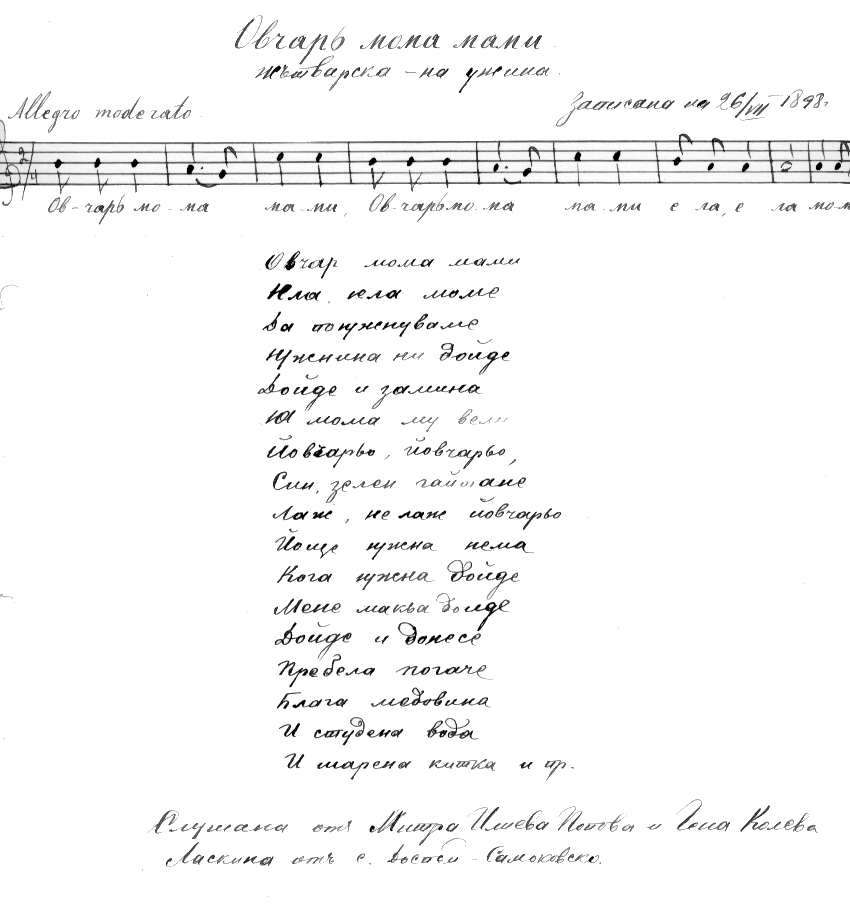 Овчарь мома мами
жътварска - на ужина.
Allegro moderato.
Записана на 26/VII 1898.
2/4
Ов-чарь мо-ма ма-ми, Ов-чарь мо-ма ма-ми е ла, е ла мом
Овчар мома мами
Юла, юла моме
Да поюжнуваме
Южнина ни дойде
Дойде и замина
Ю мома му вели
Йовчарьо, йовчарьо,
Син, зелен гайтане
Лаж, не лаж йовчарьо
Йоще южна нема
Кога южна дойде
Мене макьа дойде
Дойде и донесе
Пребела погаче
Блага медовина
И студена вода
И шарена китка и пр.
Слушана отъ Митра Попова и Гена Колева
Ласкина отъ с. Доспей - Самоковско.